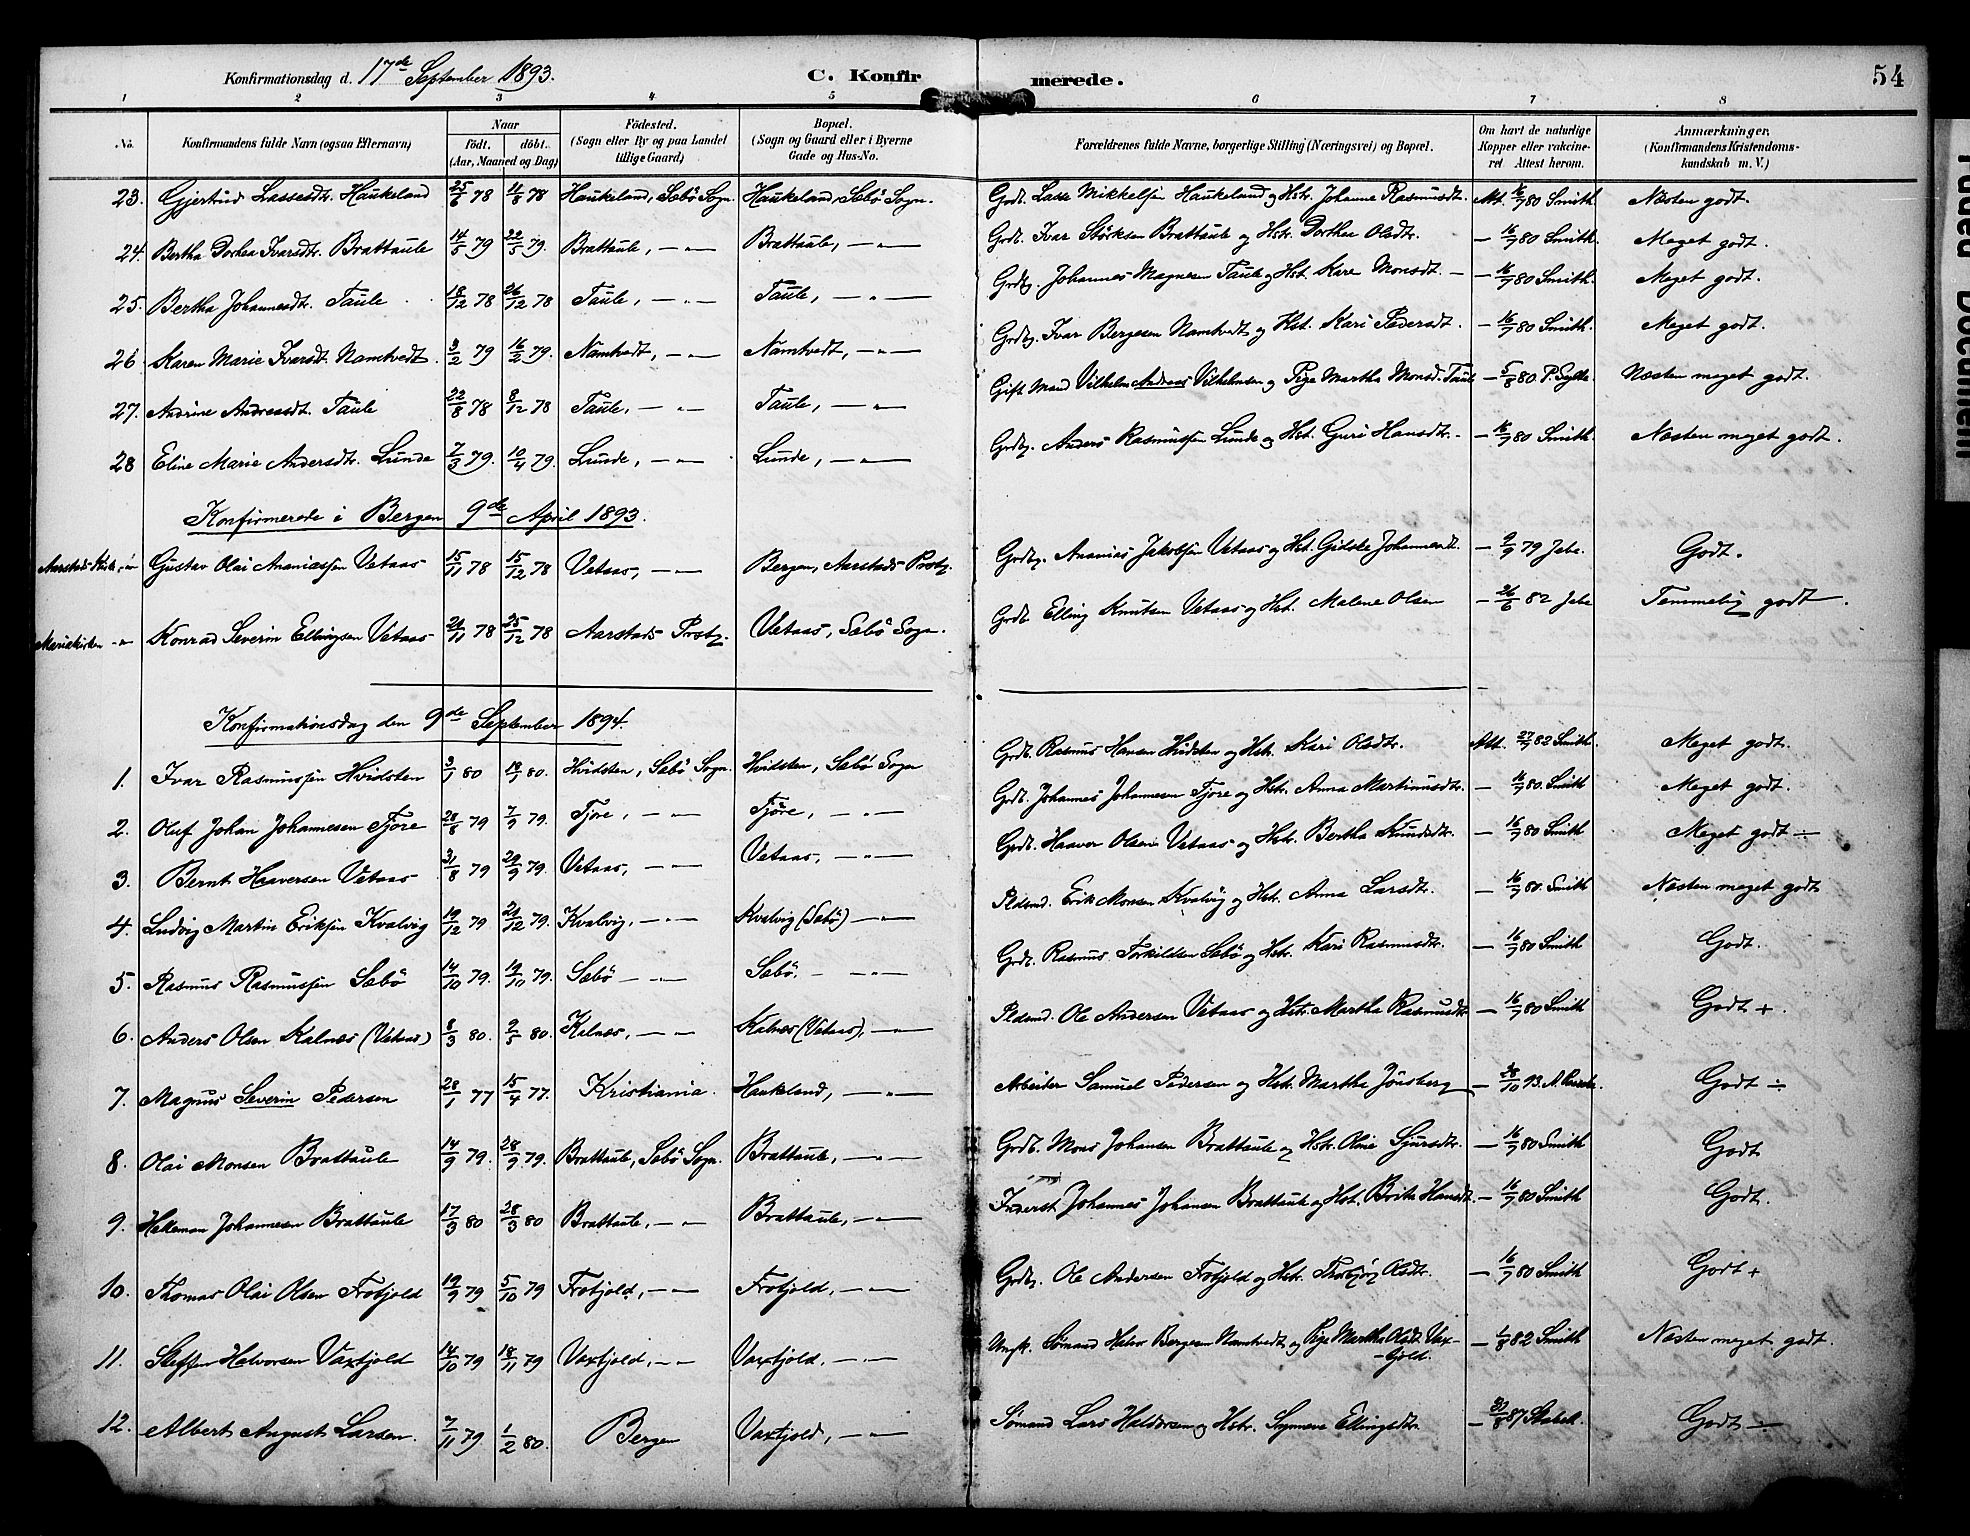 Konfirmationsdag d. 17de September 1893. C. Konfirmerede. 54
1 2 3 4 5 6 7 8
No. Konfirmandens fulde Navn (ogsaa Efternavn) Naar födt. döbt. (Aar, Maaned og Dag) Födested. (Sogn eller By og paa Landet tillige Gaard) Bopæl. (Sogn og Gaard eller i Byerne Gade og Hus-No. Forældrenes fulde Navne, borgerlige Stilling (Næringsvei) og Bopæl. Om havt de naturlige Kopper eller vaccineret Attest herom. Anmærkninger, (Konfirmandens Kristendomskundskab m. V.)
23. Gjertrud Lassesdtr. Haukeland 25/6 78 11/8 78 Haukeland, Sæbö Sogn. Haukeland, Sæbö Sogn. Grdb. Lasse Mikkelsen Haukeland og Hstr. Johanna Rasmusdtr. Att. 16/7 80 Smith Næsten godt.
24. Bertha Dorhea Ivarsdtr. Brattaule 14/5 79 22/5 79. Brattaule, — „ — Brattaule, — „ — Grdb. Ivar Störksen Brattaule og Hstr. Dorthea Olsdtr. — 16/7 80 Smith. Meget godt.
25. Bertha Johannesdtr. Taule 18/12 78 26/12 78 Taule, — „ — Taule, — „ — Grdbr. Johannes Magnesen Taule og Hst. Kari Monsdt. — 16/7 80 Smith. Meget godt.
26. Karen Marie Ivarsdt. Namtvedt. 3/2 79 16/2 79. Namtvedt, — „ — Namtvedt, — „ — Grdbr. Ivar Bergesen Namtvedt og Hst. Kari Pedersdt. — 16/7 80 Smith. Meget godt.
27. Andrine Andreasdt. Taule 22/8 78 8/12 78 Taule, — „ — Taule, — „ — Gift Mand Vilhelm Andreas Vilhelmsen og Pige Martha Monsd. Taule — 5/8 80 P. Sylte. Næsten meget godt.
28 Eline Marie Andersdtr. Lunde 7/3 79. 10/4 79. Lunde, — „ — Lunde, — „ — Grdbr. Anders Rasmussen Lunde og Hst. Guri Hansdtr. — 16/7 80 Smith. Næsten meget godt.
Konfirmerede i Bergen 9de April 1893.
Gustav Olai Ananiassen Vetaas 15/11 78 15/12 78 Vetaas, — „ — Bergen, Aarstads Prstg. Grdbr. Ananias Jakobsen Vetaas og Hst. Gidske Johannesdt. — 9/9 79 Godt.
Mariakirken — „ Konrad Severin Ellingsen Vetaas 21/11 78 25/12 78 Aarstads Prstg. Vetaas, Sæbö Sogn. Grdb. Elling Knutsen Vetaas og Hst. Malene Olsen — 26/6 82 Temmelig godt.
Konfirmationsdag den 9de September 1894.
1. Ivar Rasmussen Hvidsten 3/1 80 18/1 80. Hvidsten, Sæbö Sogn. Hvidsten, Sæbö Sogn Grdb. Rasmus Hansen Hvidsten og Hstr. Kari Olsdtr. Att. 27/7 82 Smith. Meget godt.
2. Oluf Johan Johannesen Fjöre 28/8 79 7/9 79. Fjöre, — „ — Fjöre, — „ — Grdb. Johannes Johannesen Fjöre og Hstr. Anna Martinusdtr. — 16/7 80. Smith Meget godt.
3. Bernt Haaversen Vetaas 31/8 79 29/9 79. Vetaas, — „ — Vetaas, — „ — Grdb. Haaver Olsen Vetaas og Hstr. Bertha Knudsdtr. — 16/7 80 Smith Meget godt ÷
4. Ludvig Martin Eriksen Kvalvig 19/12 79 21/12 79. Kvalvig, — „ — Kvalvig (Sæbö) — „ — Pldsmd. Erik Monsen Kvalvig og Hstr. Anna Larsdt. — 16/7 80. Smith Næsten meget godt
5. Rasmus Rasmussen Sæbö 14/10 79. 19/10 79. Sæbö — „ — Sæbö. — „ — Grdb. Rasmus Torkildsen Sæbö og Hstr. Kari Rasmusdtr. — 16/7 80 Smith Godt.
6. Anders Olsen Kalnæs (Vetaas) 8/3 80. 2/5 80. Kalnæs, — „ — Kalnæs (Vetaas), — „ — Pldsmd. Ole Andersen Vetaas og Hstr. Martha Rasmusdtr — 16/7 80 Smith Godt +.
7. Magnus Severin Pedersen 28/1 77 15/4 77. Kristiania. Haukeland, — „ — Arbeider Samuel Pedersen og Hstr. Martha Jönsberg — 28/10 93. Godt ÷
8. Olai Monsen Brattaule 14/9 79. 28/9 79. Brattaule, Sæbö Sogn. Brattaule, — „ — Grdb. Mons Johansen Brattaule og Hstr. Oline Sjursdtr. — 16/7 80 Smith Godt
9. Halleman Johannesen Brattaule 17/3 80 28/3 80 Brattaule, — „ — Brattaule, — „ — Inderst Johannes Johansen Brattaule og Hst. Brite Hansdt. — 16/7 80 Smith Godt.
10. Thomas Olai Olsen Frotjold 19/9 79 5/10 79 Frotjold, — „ — Frotjold, — „ — Grdbr. Ole Andersen Frotjold og Hstr. Thorbjörg Olsdtr. — 16/7 80 Smith Godt +
11. Steffen Halvorsen Vaxtjold 14/10 79 18/11 79 Vaxtjold, — „ — Vaxtjold, — „ — Ungk. Sömand Halvor Bergesen Namtvedt og Pige Martha Olsdt. Vaxtjold. — 1/8 82 Smith Næsten meget godt.
12. Albert August Larsen. 7/11 79 1/2 80. Bergen Vaxtjold, — „ — Sömand Lars Haldorsen og Hstr. Synneva Ellingsdtr. — 30/8 87 Godt ÷